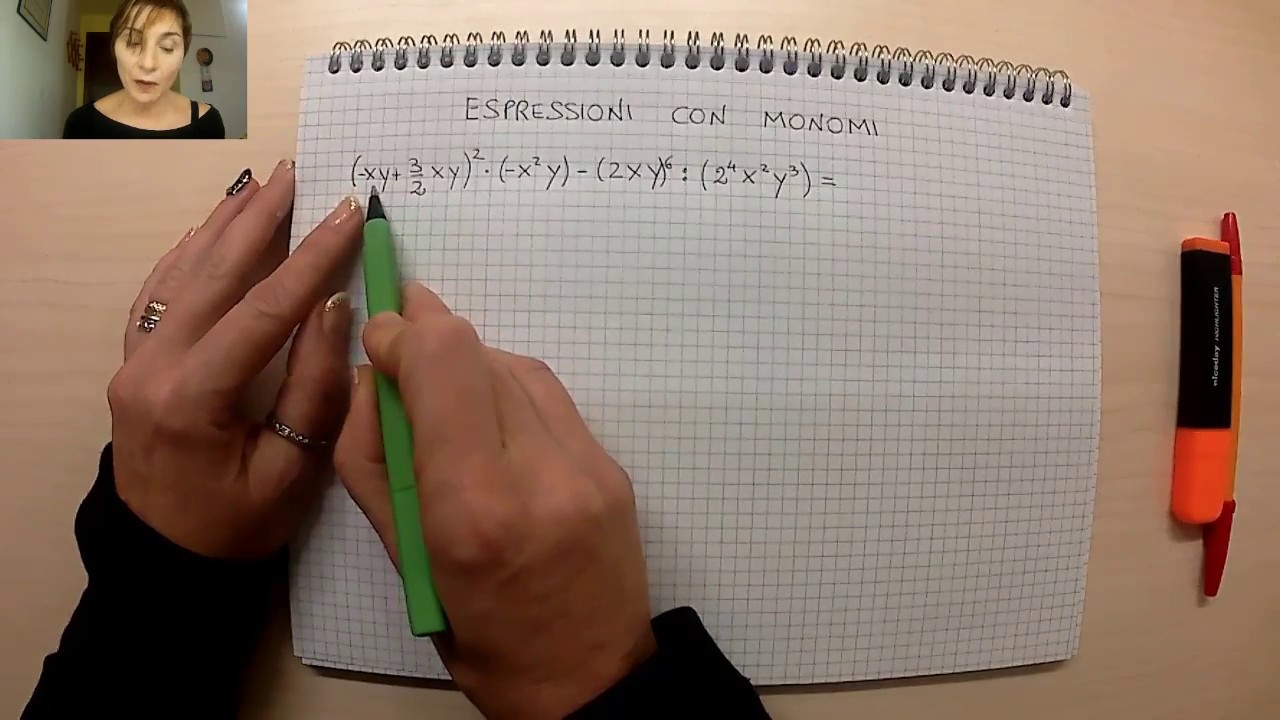 ESPRESSIONI CON MONOMI
(-xy+3/2 xy)² · (-x²y) - (2xy)⁶ : (2⁴x²y³) =
niceday HIGHLIGHTER